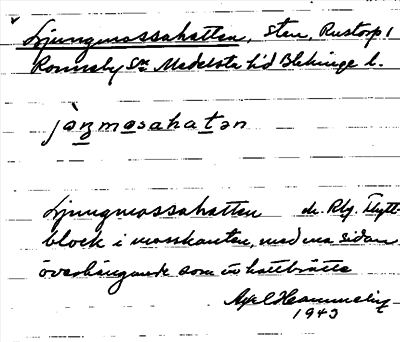 Ljungmossahatten, sten, Rustorp 1
Ronneby sn Medelsta hd Blekinge l.
jəŋmosahatən
Ljungmossahatten de. Rbg. Flytt-
block i mosskanten, med ena sidan
överhängande som ett hattbrätte
Axel
1943